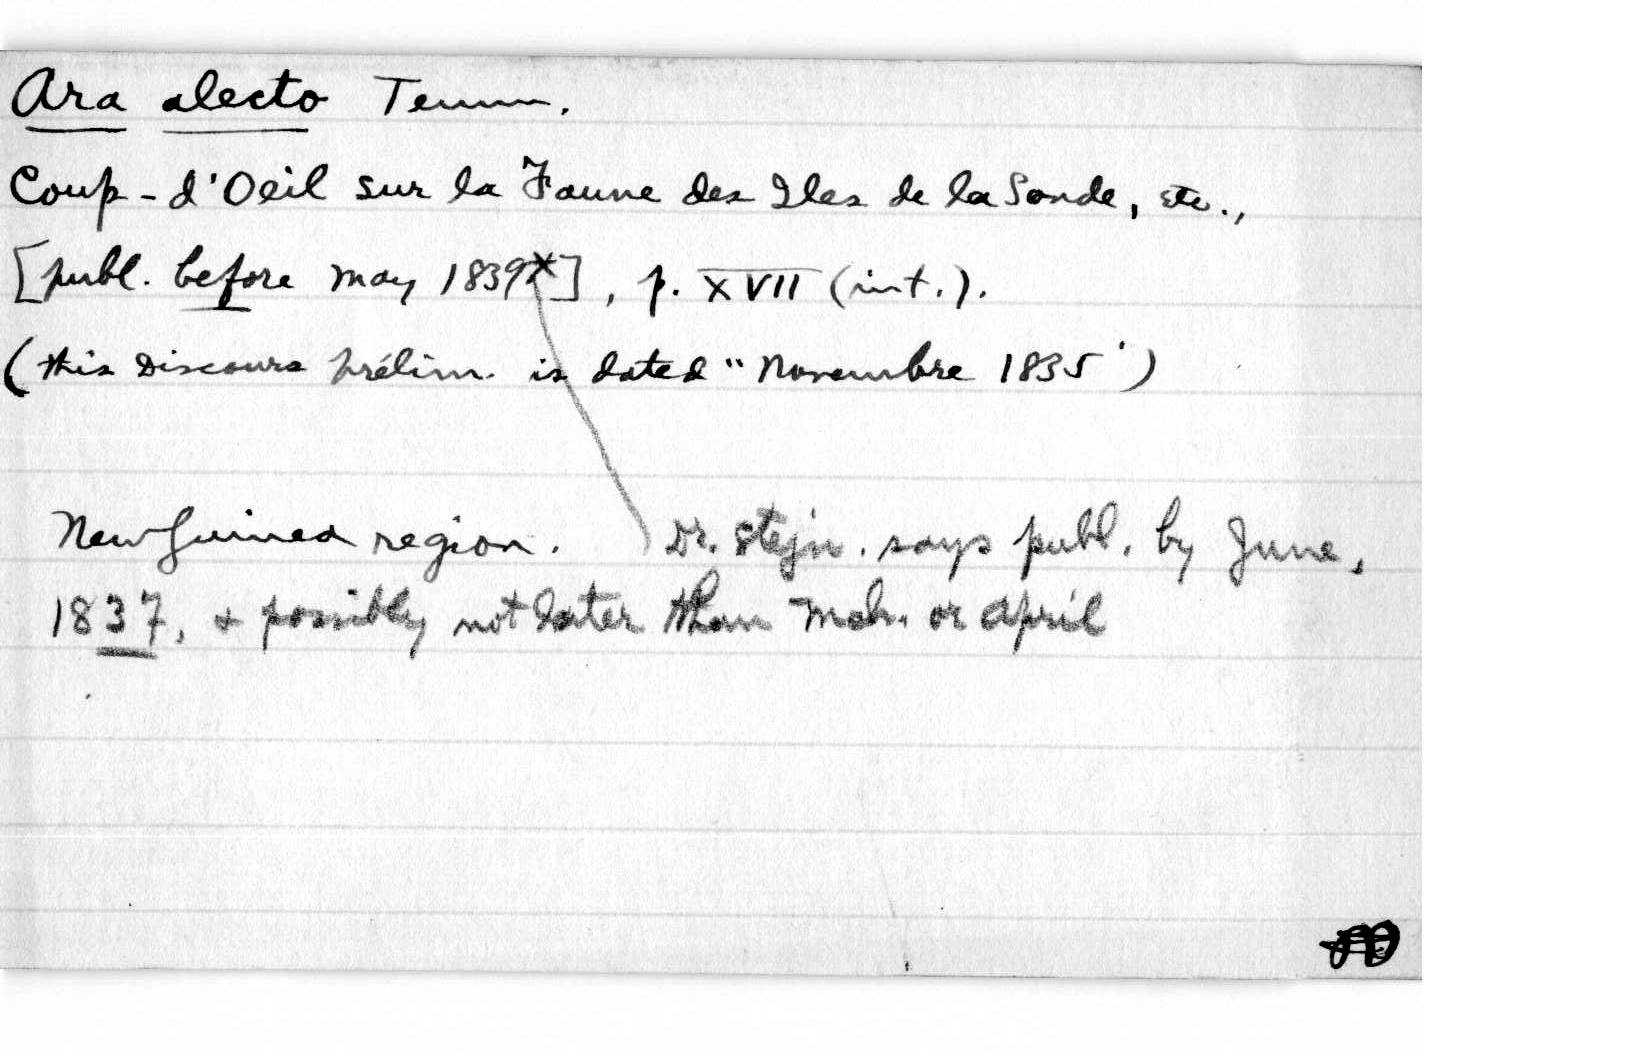 Ara alecto Temm.
Coup-d'Oeil sur la Faune des Iles de la Sonde, etc.,
[publ. before May 1839x], p. XVII (int.).
(this Discours prélim. is dated "Novembre 1835')
New Guinea region. Dr. Stejn. says publ. by June,
1837, + possibly not later than Mch. or April